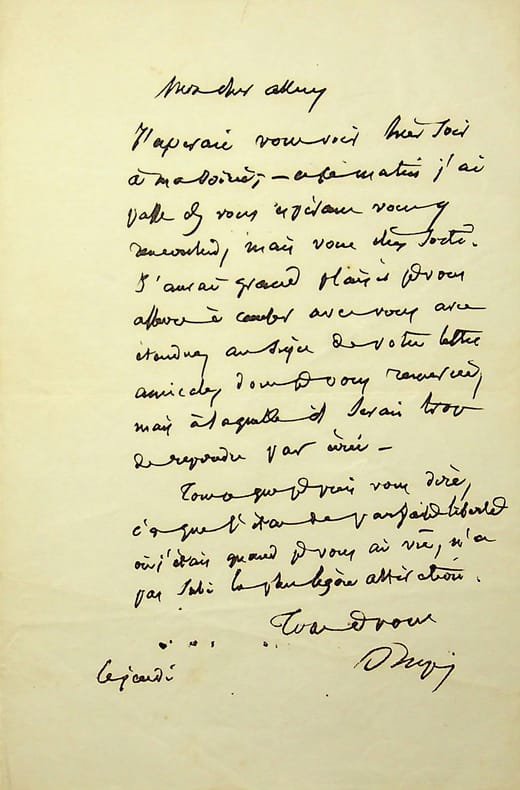 Mon cher
J'esperais vous voir hier soir
à ma soirée, — ce matin j'ai
passé chez vous espérant vous y
rencontrer, mais vous étiez sorti.
J'aurai grand plaisir je vous
assure à causer avec vous avec
étendue au sujet de votre lettre
amicale, dont je vous remercie,
mais à laquelle il serait trop
de repondre par écrit —
Tout ce que je puis vous dire,
c'est que l'état de parfaite liberté
où j'étais quand je vous ai vu, n'a
pas subi la plus légère altération.
Tout à vous
le jeudi